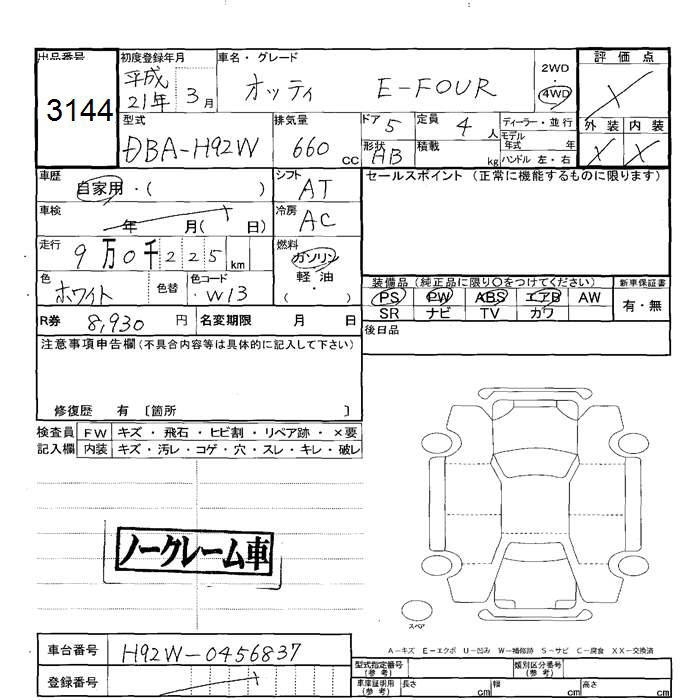 出品番号 初度登録年月 車名・グレード 2WD 評価点
3144 平成21年 3月 オッティ E-FOUR 4WD
型式 排気量 ドア 5 定員 4人 ディーラー・並行 外装 内装
DBA-H92W 660cc 形状 HB 積載 kg モデル年式 年
ハンドル 左・右
車歴 自家用・( ) シフト AT セールスポイント (正常に機能するものに限ります)
車検 年 月( 日) 冷房 AC
走行 9万0千225km 燃料 ガソリン 軽油 ( ・ )
色 ホワイト 色替 色コード W13
装備品 (純正品に限り○をつけてください) 新車保証書
PS PW ABS エアB AW 有・無
SR ナビ TV カワ
R券 8,930円 名変期限 月 日 後日品
注意事項申告欄(不具合内容等は具体的に記入して下さい)
修復歴 有 〔箇所 〕
検査員 FW キズ・飛石・ヒビ割・リペア跡・×要
記入欄 内装 キズ・汚レ・コゲ・穴・スレ・キレ・破レ
ノークレーム車
スペア
A-キズ E-エクボ U-凹み W-補修跡 S-サビ C-腐食 XX-交換済
車台番号 H92W-0456837
型式指定番号(参考) 類別区分番号(参考)
登録番号 車庫証明用(参考) 長さ cm 幅 cm 高さ cm